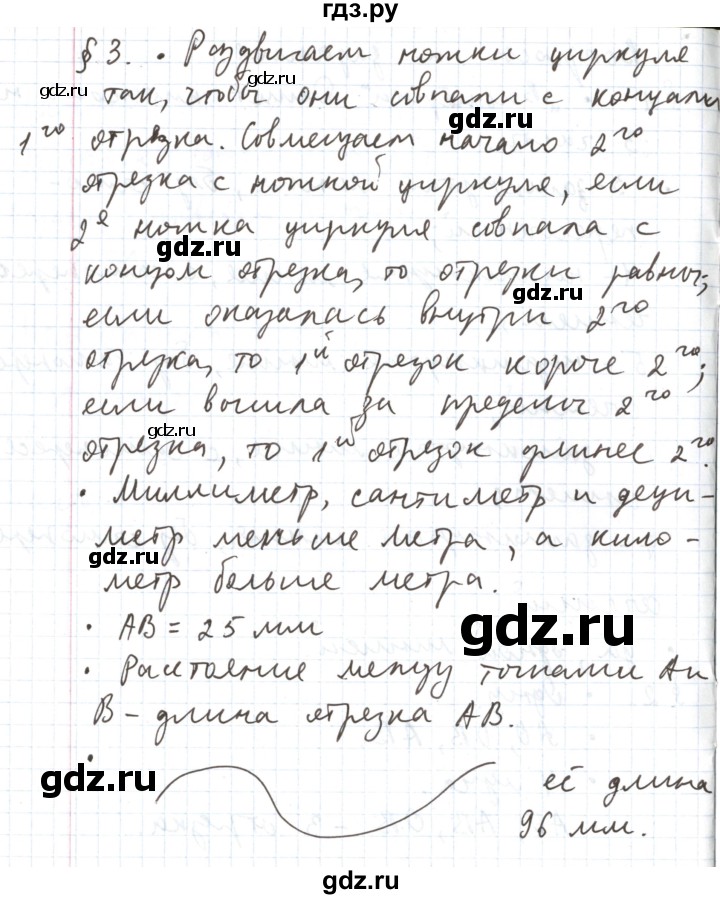 гдз.ру
§ 3. • Раздвигаем ножки циркуля
gdz.ru gdz.ru
так, чтобы они совпали с концами
gdz.ru
1го отрезка. Совмещаем начало 2го
отрезка с ножкой циркуля, если
2я ножка циркуля совпала с
gdz.ru
концом отрезка, то отрезки равны;
gdz.ru
если оказалась внутри 2го
отрезка, то 1й отрезок короче 2го;
если вышла за пределы 2го
gdz.ru
отрезка, то 1й отрезок длинее 2го.
• Миллиметр, сантиметр и деци-
метр меньше метра, а кило-
gdz.ru
метр больше метра.
• AB = 25 мм
gdz.ru
• Растояние между точками A и
B - длина отрезка AB.
•
gdz.ru
её длина
gdz.ru
96 мм.
gdz.ru